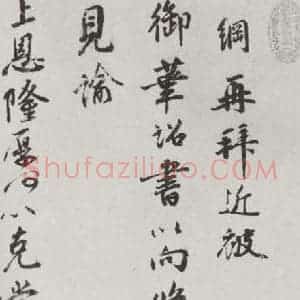 綱再拜近被
御筆詔書以向
見諭
上恩隆厚何以克當
shufaziliao.com